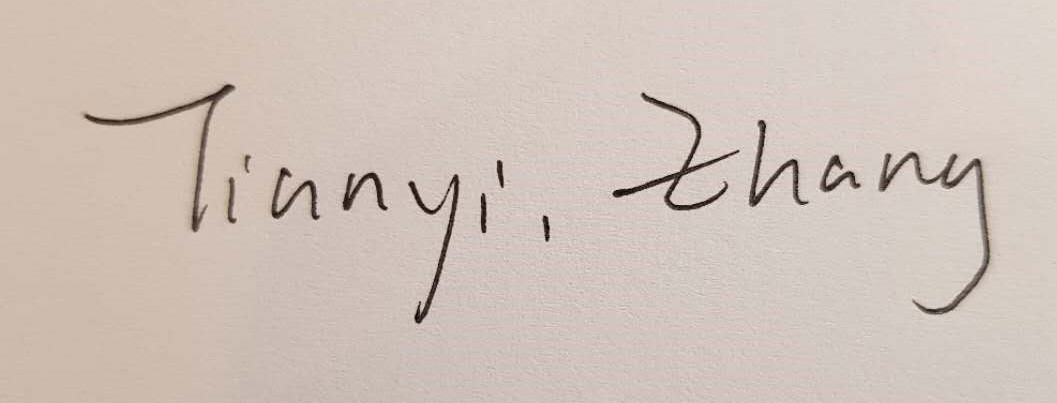 Tianyi, Zhang